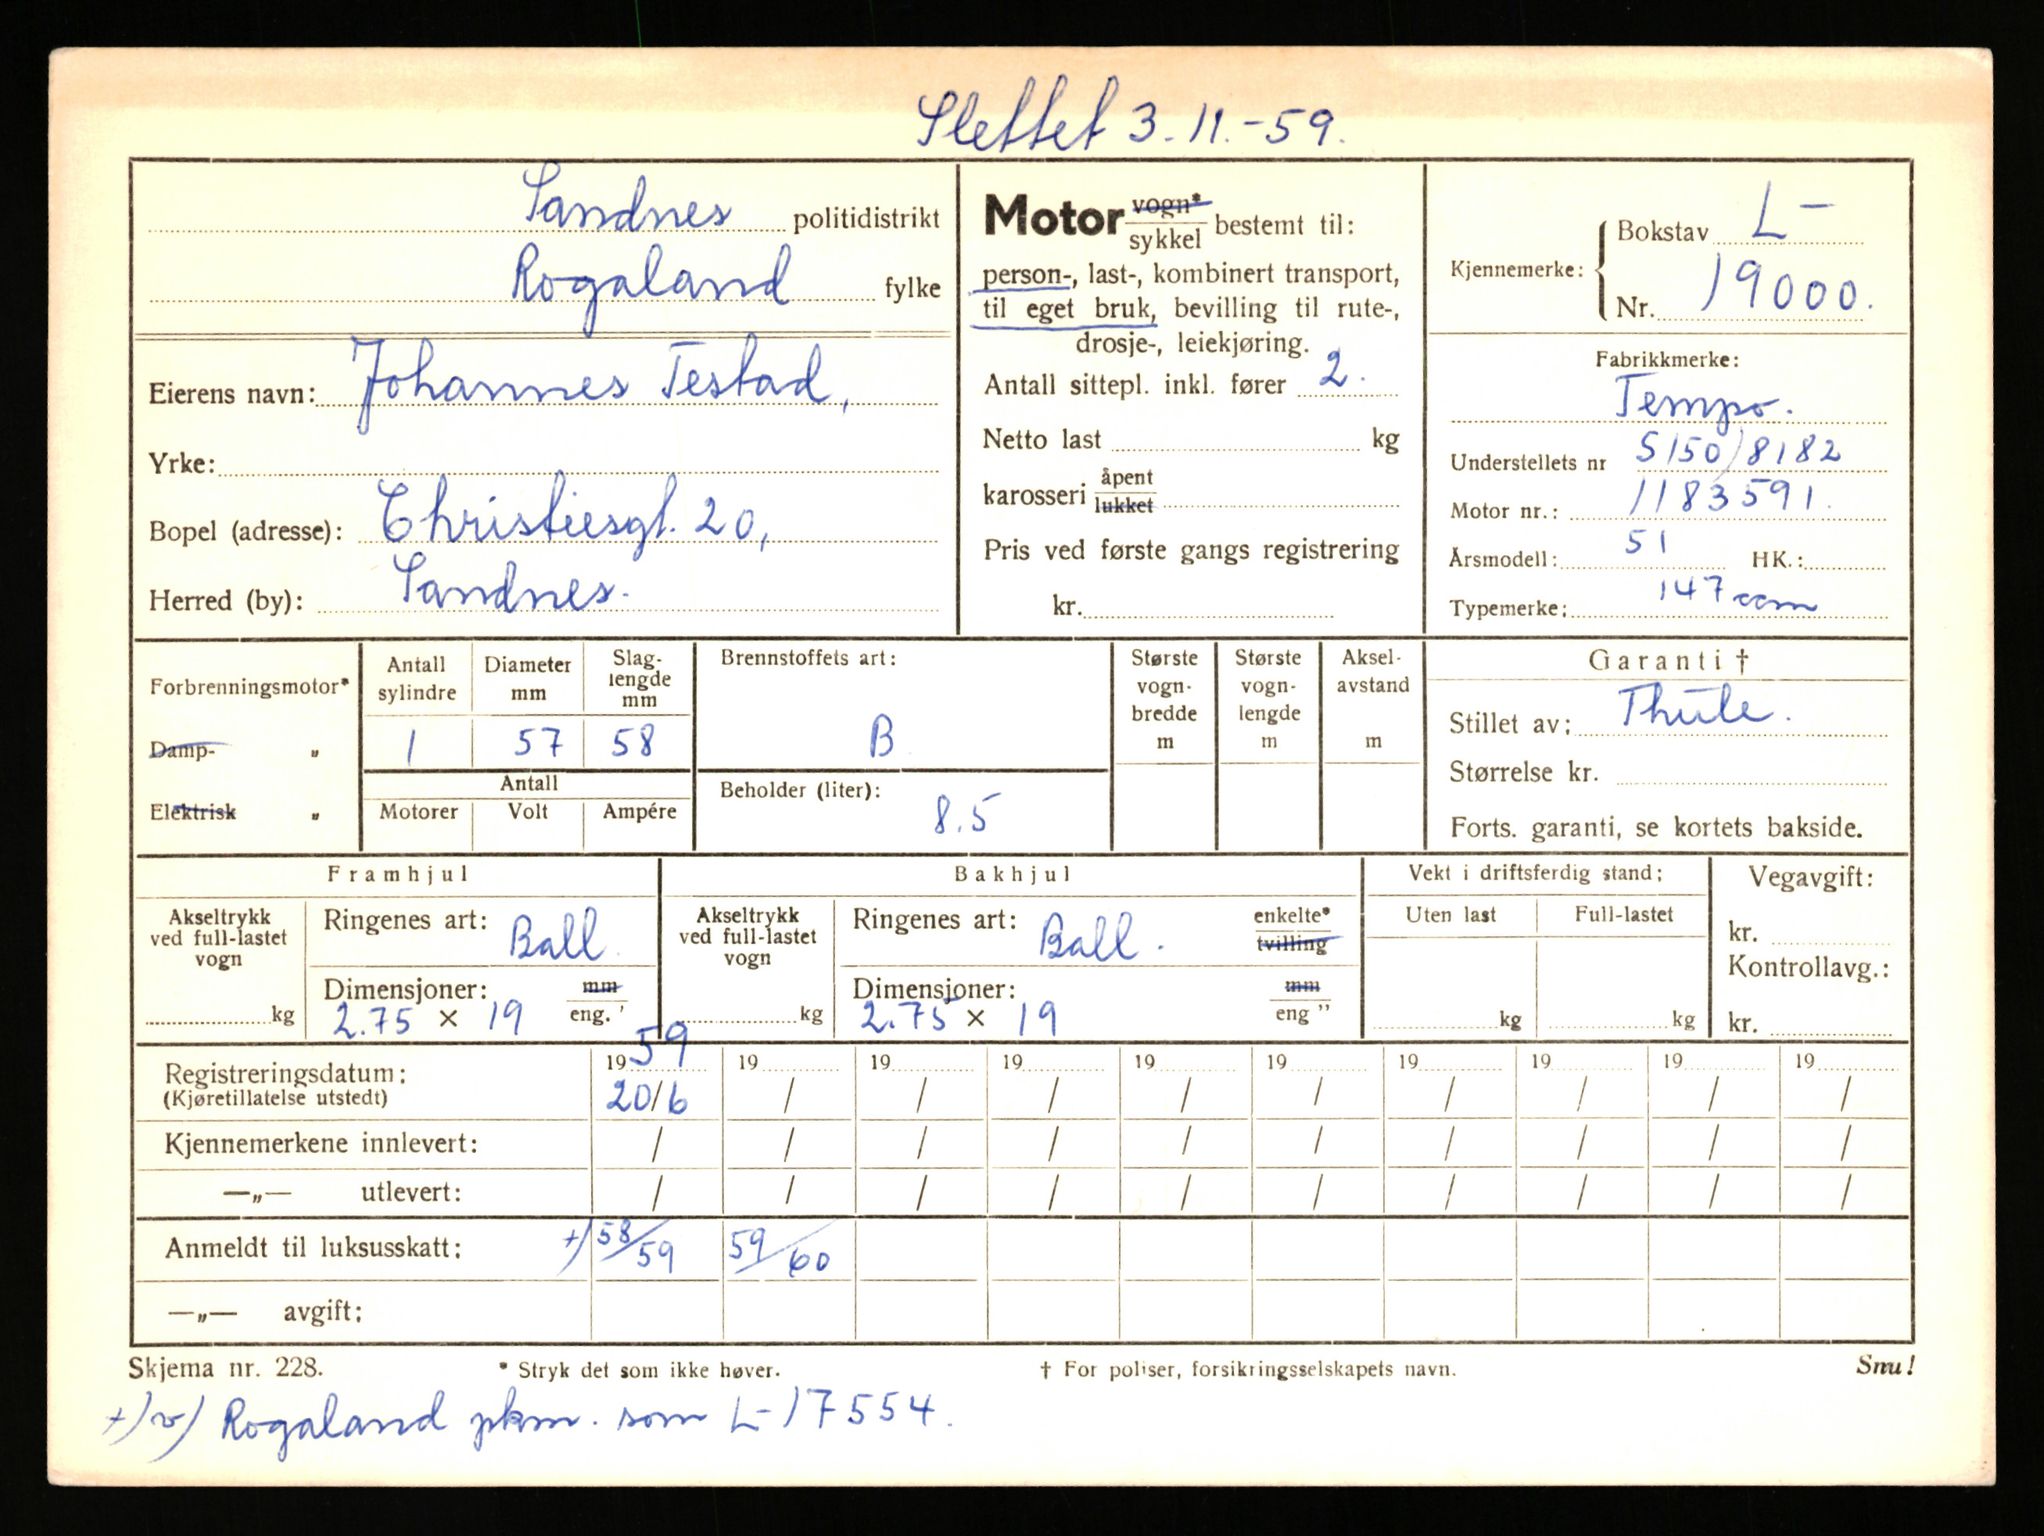 Slettet 3.11.-59.
Sandnes politidistrikt
Rogaland fylke
Eierens navn: Johannes Testad,
Yrke:
Bopel (adresse): Christiesgt. 20,
Herred (by): Sandnes.
Motor vogn* sykkel bestemt til:
person-, last-, kombinert transport,
til eget bruk, bevilling til rute-,
drosje-, leiekjøring.
Antall sittepl. inkl. fører 2.
Netto last kg
karosseri åpent lukket
Pris ved første gangs registrering
kr.
Kjennemerke: Bokstav L-
Nr. 19000.
Fabrikkmerke:
Tempo.
Understellets nr S150/8182
Motor nr.: 1183591.
Årsmodell: 51 HK.:
Typemerke: 147 ccm
Forbrenningsmotor*
Damp- "
Elektrisk "
Antall sylindre
Diameter mm
Slaglengde mm
1 57 58
Antall
Motorer Volt Ampére
Brennstoffets art:
B
Beholder (liter):
8.5
Største vogn-bredde m
Største vogn-lengde m
Aksel-avstand m
Garanti †
Stillet av: Thule.
Størrelse kr.
Forts. garanti, se kortets bakside.
Framhjul
Akseltrykk ved full-lastet vogn
kg
Ringenes art: Ball
Dimensjoner: mm
2.75 x 19 eng. '
Bakhjul
Akseltrykk ved full-lastet vogn
kg
Ringenes art: Ball. enkelte* tvilling
Dimensjoner: mm
2.75 x 19 eng "
Vekt i driftsferdig stand:
Uten last Full-lastet
kg kg
Vegavgift:
kr.
Kontrollavg.:
kr.
Registreringsdatum: 1959 19 19 19 19 19 19 19 19 19
(Kjøretillatelse utstedt) 20/6 / / / / / / / / /
Kjennemerkene innlevert: / / / / / / / / / /
—„— utlevert: / / / / / / / / / /
Anmeldt til luksusskatt: +) 58/59 59/60
—„— avgift:
Skjema nr. 228. * Stryk det som ikke høver. † For poliser, forsikringsselskapets navn. Snu!
+) v/ Rogaland pkm. som L-17554.